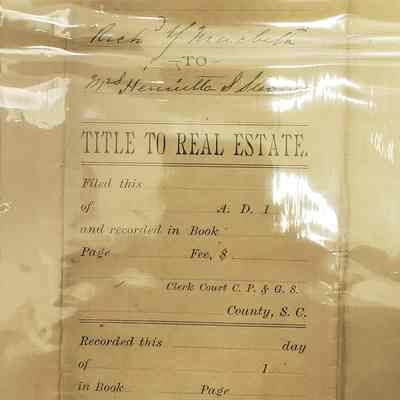 Rich^d Y Macbeth
TO
Mrs Henrietta S
TITLE TO REAL ESTATE.
Filed this
of A. D. 1
and recorded in Book
Page Fee, $
Clerk Court C. P. & G. S.
County, S. C.
Recorded this day
of 1
in Book Page